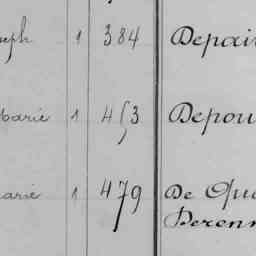 seph 1 384 Depair
Marie 1 453 Depou
arie 1 479 De Que
Deronn